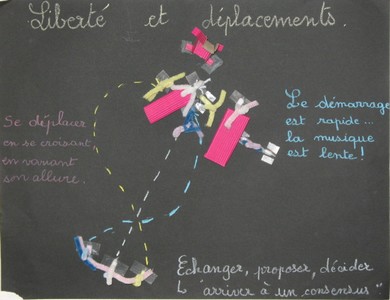 Liberté et déplacements.
Se déplacer
en se croisant
en variant
son allure.
Le démarrage
est rapide...
la musique
est lente !
Echanger, proposer, décider
↳ "arriver à un consensus"